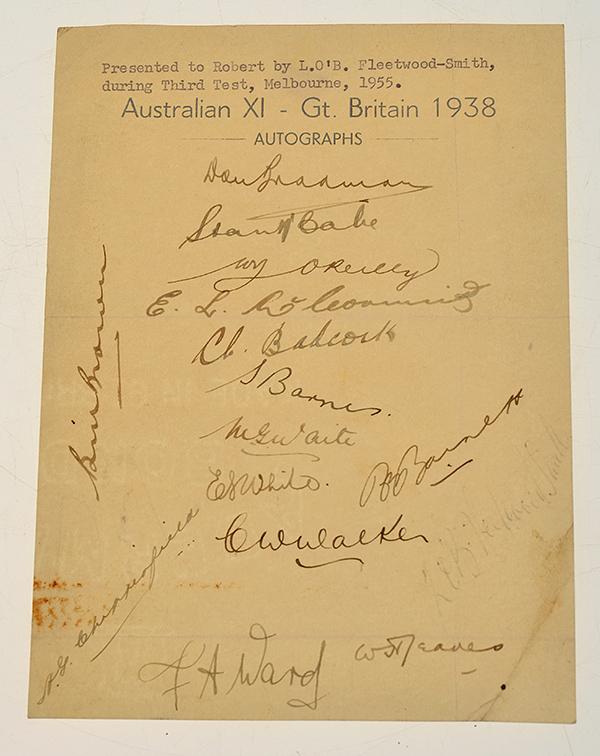 Presented to Robert by L.O'B. Fleetwood-Smith,
during Third Test, Melbourne, 1955.
Australian XI - Gt. Britain 1938
AUTOGRAPHS
Don Bradman
Stan McCabe
WJ O'Reilly
E. L. McCormick
Cl. Badcock
S Barnes.
M G Waite
E S White.
B A Barnett
C W Walker
Bill Brown
A. G. Chipperfield
L O'B Fleetwood Smith
F A Ward
W H Jeanes